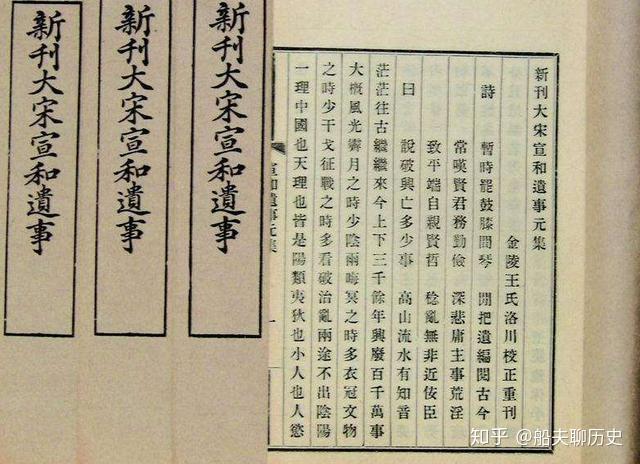 新刊大宋宣和遺事
新刊大宋宣和遺事
新刊大宋宣和遺事
新刊大宋宣和遺事元集
金陵王氏洛川校正重刊
詩 暫時罷鼓膝間琴 閒把遺編閱古今
常嘆賢君務勤儉 深悲庸主事荒淫
致平端自親賢哲 稔亂無非近佞臣
曰 說破興亡多少事 高山流水有知音
茫茫往古繼繼來今上下三千餘年興廢百千萬事
大槪風光霽月之時少陰雨晦冥之時多衣冠文物
之時少干戈征戰之時多看破治亂兩途不出陰陽
一理中國也天理也皆是陽類夷狄也小人也人慾
宣和遺事元集
一
知乎 @船夫聊历史